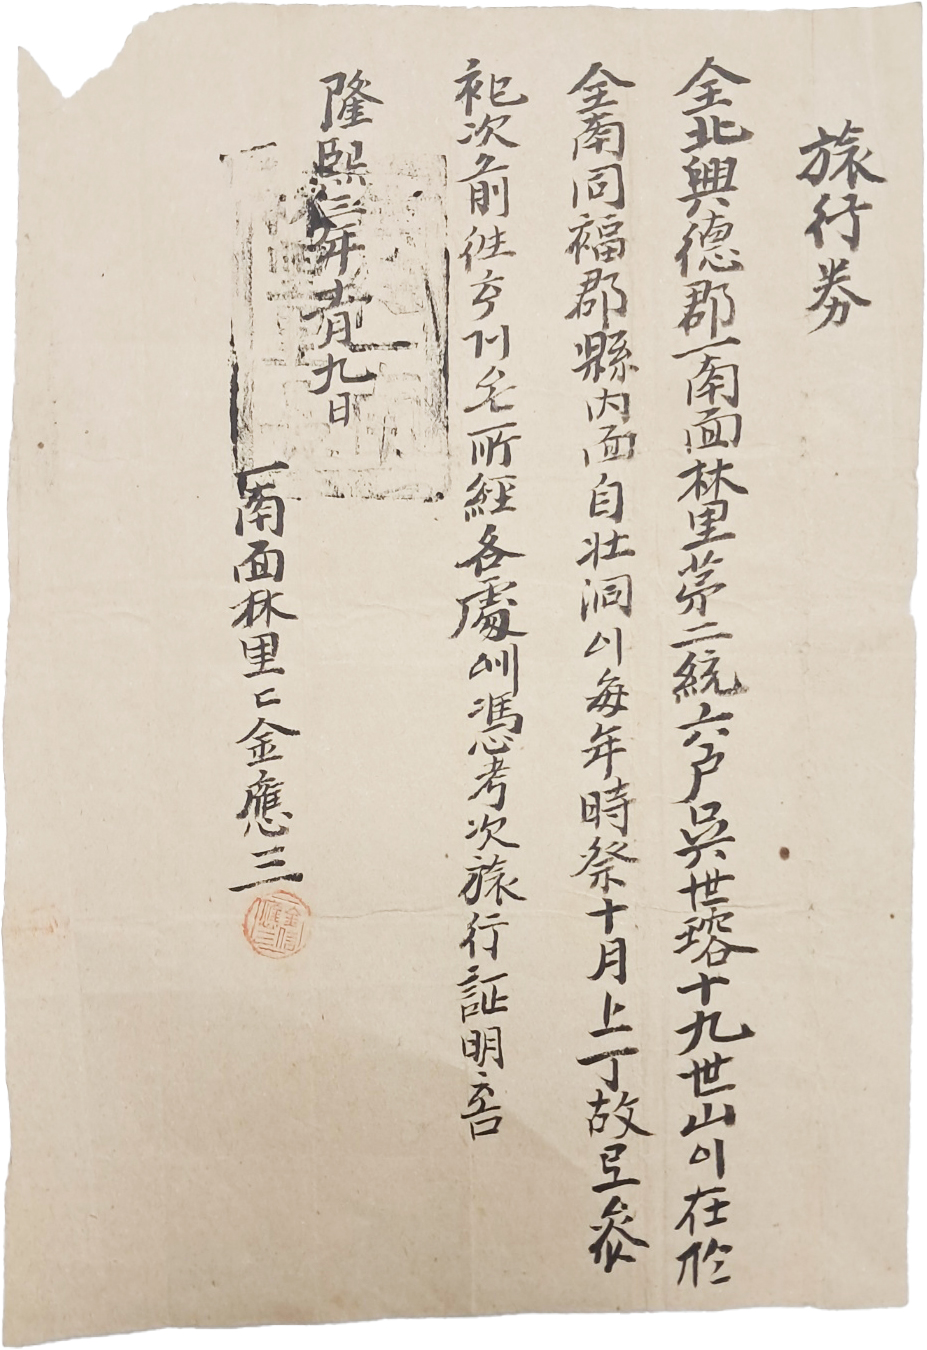 旅行券
全北興德郡一南面林里苐二統六戶吳世瑢十九世山이在於
全南同福郡縣內面自壯洞이每年時祭十月上丁故로參
祀次前徃京기로所經各處에憑考次旅行証明홈
隆熙三年十一月九日
一南面林里長金應三